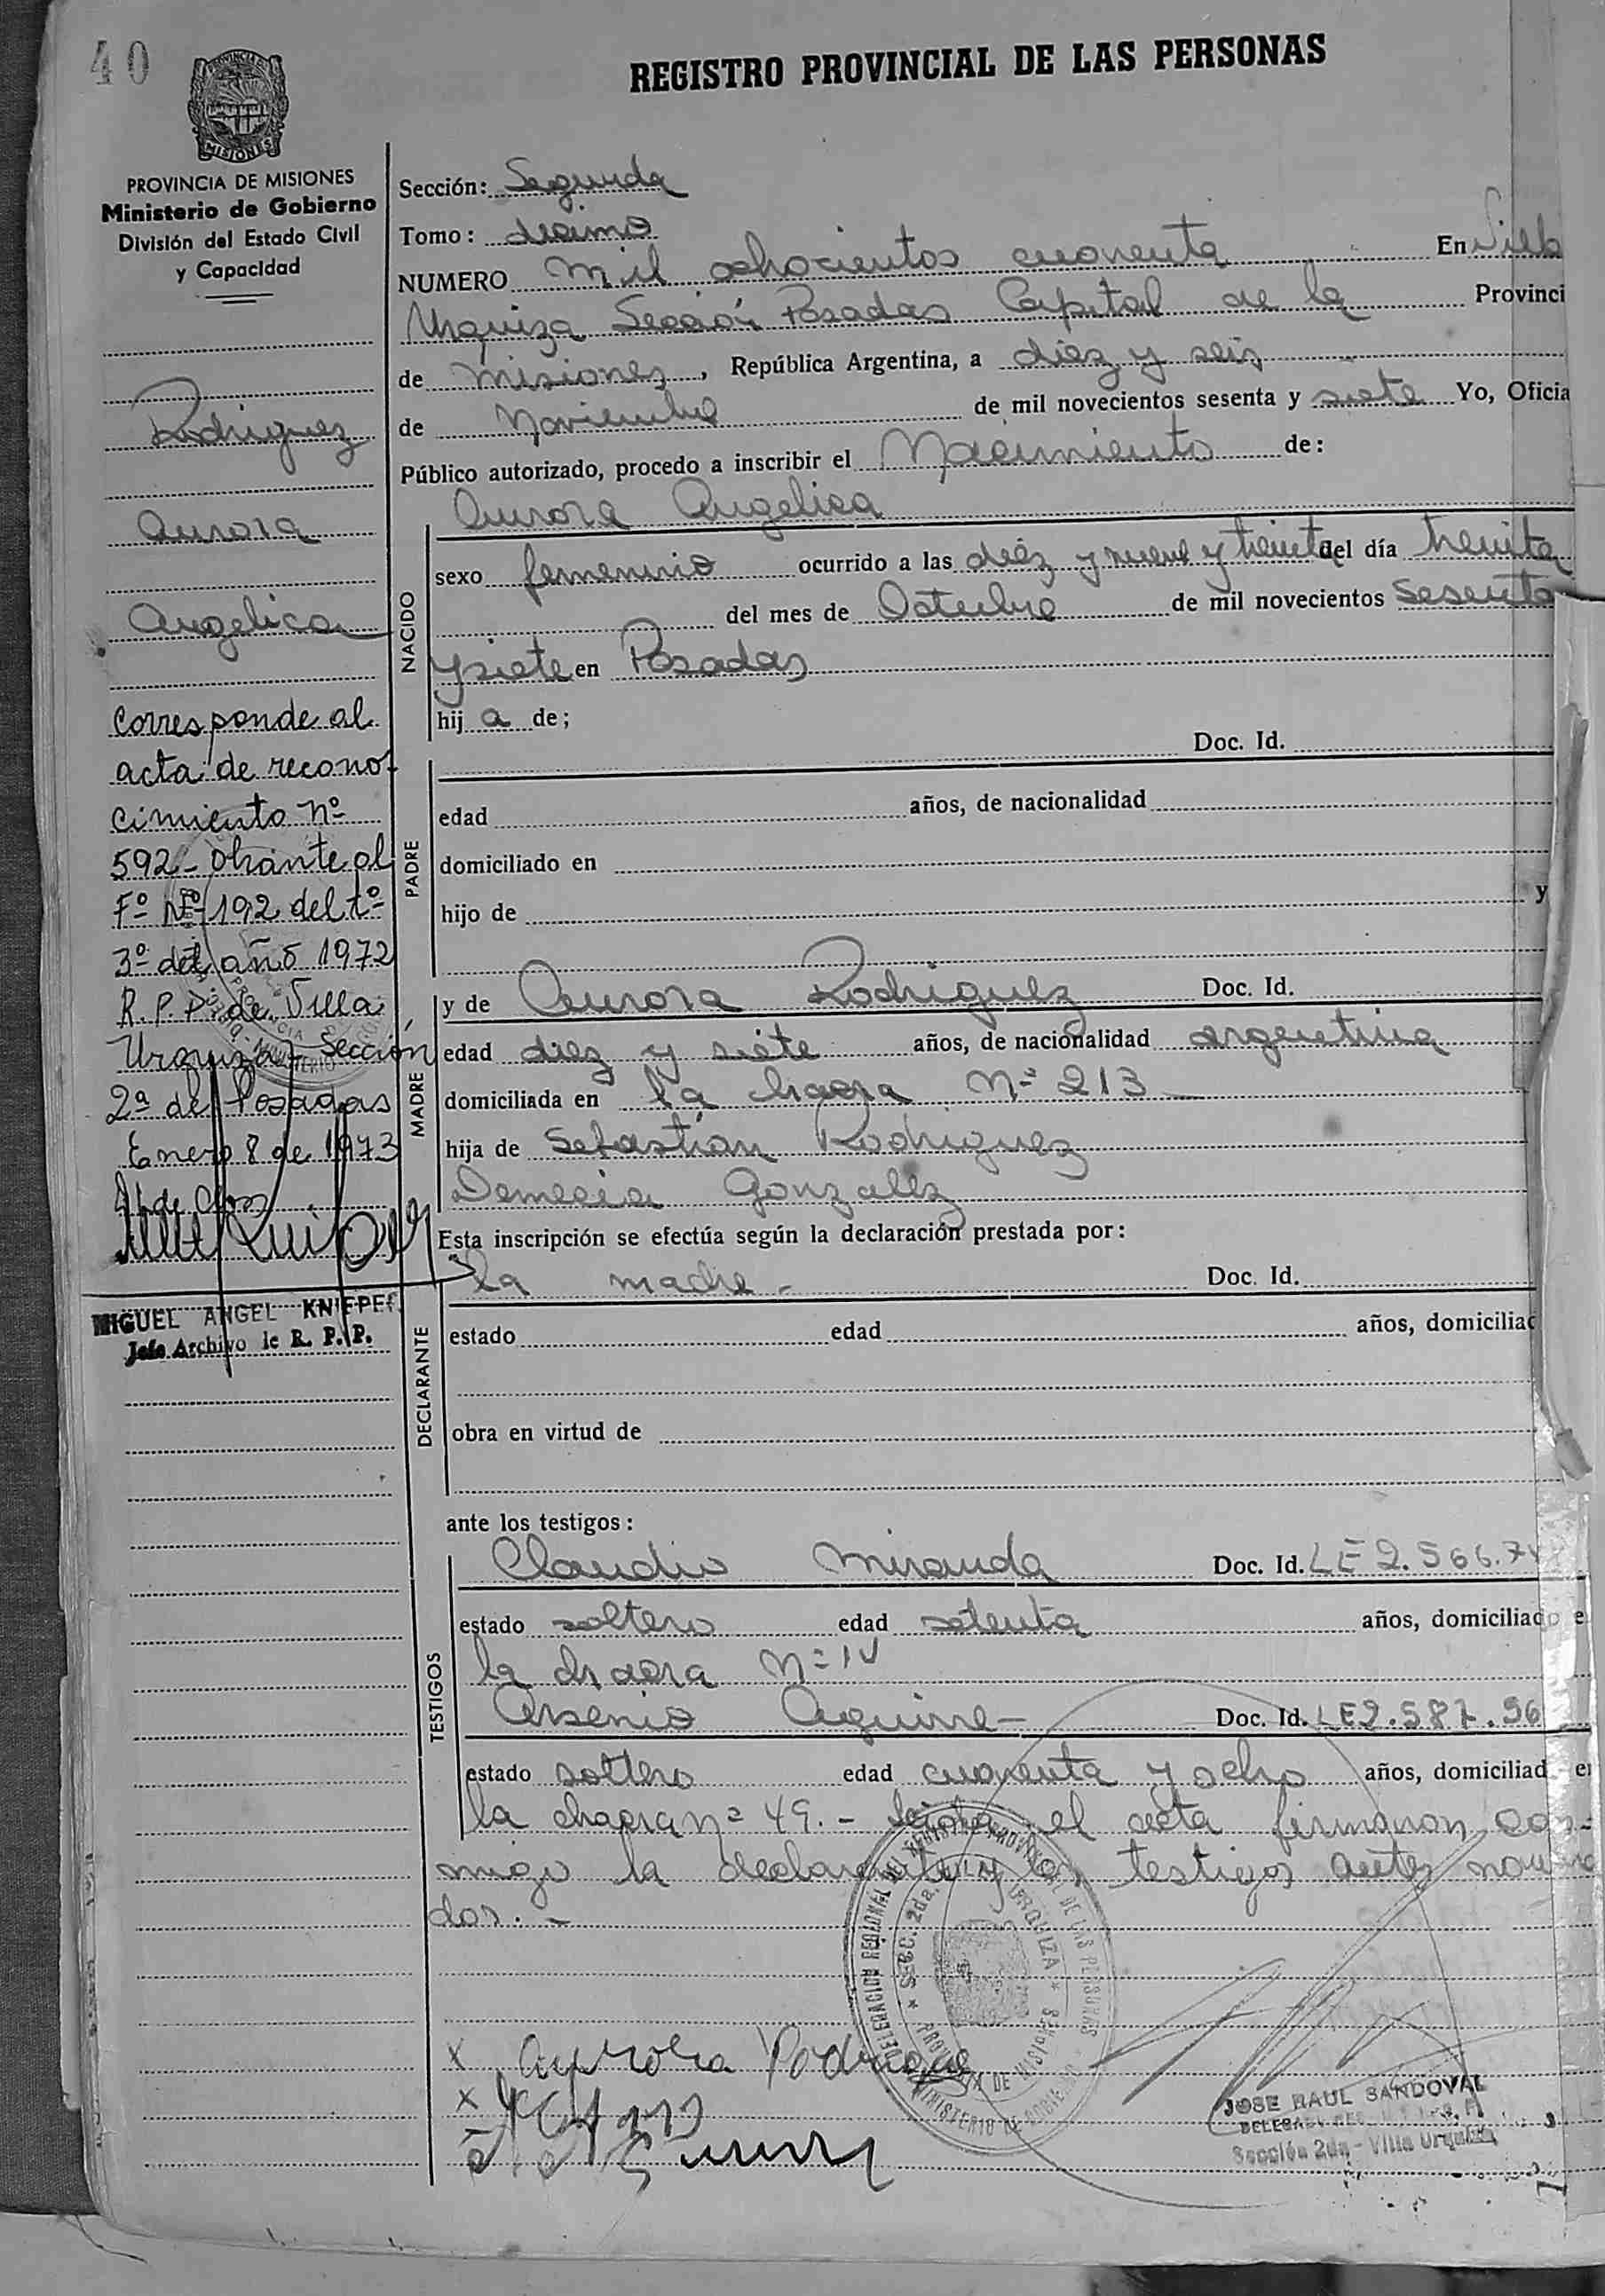 40
REGISTRO PROVINCIAL DE LAS PERSONAS
MISIONES
PROVINCIA DE MISIONES
Ministerio de Gobierno
División del Estado Civil
y Capacidad
Rodriguez
Aurora
Angelica
Corresponde al
acta de recono-
cimiento nº
592 - obrante al
Fº Nº 192 del tº
3º del año 1972
R.P.P. de Villa
Urquiza - Sección
2ª de Posadas
Enero 8 de 1973
MIGUEL ANGEL KNIEPE
Jefe Archivo de R. P. P.
Sección: Segunda
Tomo: decimo
NUMERO mil ochocientos cuarenta En Villa
Urquiza Sección Posadas Capital de la Provinci
de Misiones, República Argentina, a diez y seis
de Noviembre de mil novecientos sesenta y siete Yo, Oficia
Público autorizado, procedo a inscribir el Nacimiento de:
Aurora Angelica
NACIDO
sexo femenino ocurrido a las diez y nueve y treinta del día treinta
del mes de Octubre de mil novecientos sesenta
y siete en Posadas
hij a de;
PADRE
Doc. Id.
edad años, de nacionalidad
domiciliado en
hijo de y
MADRE
y de Aurora Rodriguez Doc. Id.
edad diez y siete años, de nacionalidad argentina
domiciliada en la chacra Nº 213
hija de Sebastian Rodriguez
Gonzalez
Esta inscripción se efectúa según la declaración prestada por:
DECLARANTE
la madre - Doc. Id.
estado edad años, domiciliad
obra en virtud de
ante los testigos:
TESTIGOS
Claudio Miranda Doc. Id. LE 2.566.74
estado soltero edad setenta años, domiciliado e
la chacra Nº
Arsenio Aguirre - Doc. Id. LE 2.587.96
estado soltero edad cuarenta y ocho años, domiciliad en
la chacra nº 49. - Leida el acta firmaron con-
migo la declarante y los testigos antes nombra
dos. -
DELEGACION REGIONAL DEL REGISTRO PROVINCIAL DE LAS PERSONAS
SECC. 2da. VILLA URQUIZA
PROVINCIA DE MISIONES
MINISTERIO DE GOBIERNO
x Aurora Rodriguez
x
JOSE RAUL SANDOVAL
Sección 2da - Villa Urquiza